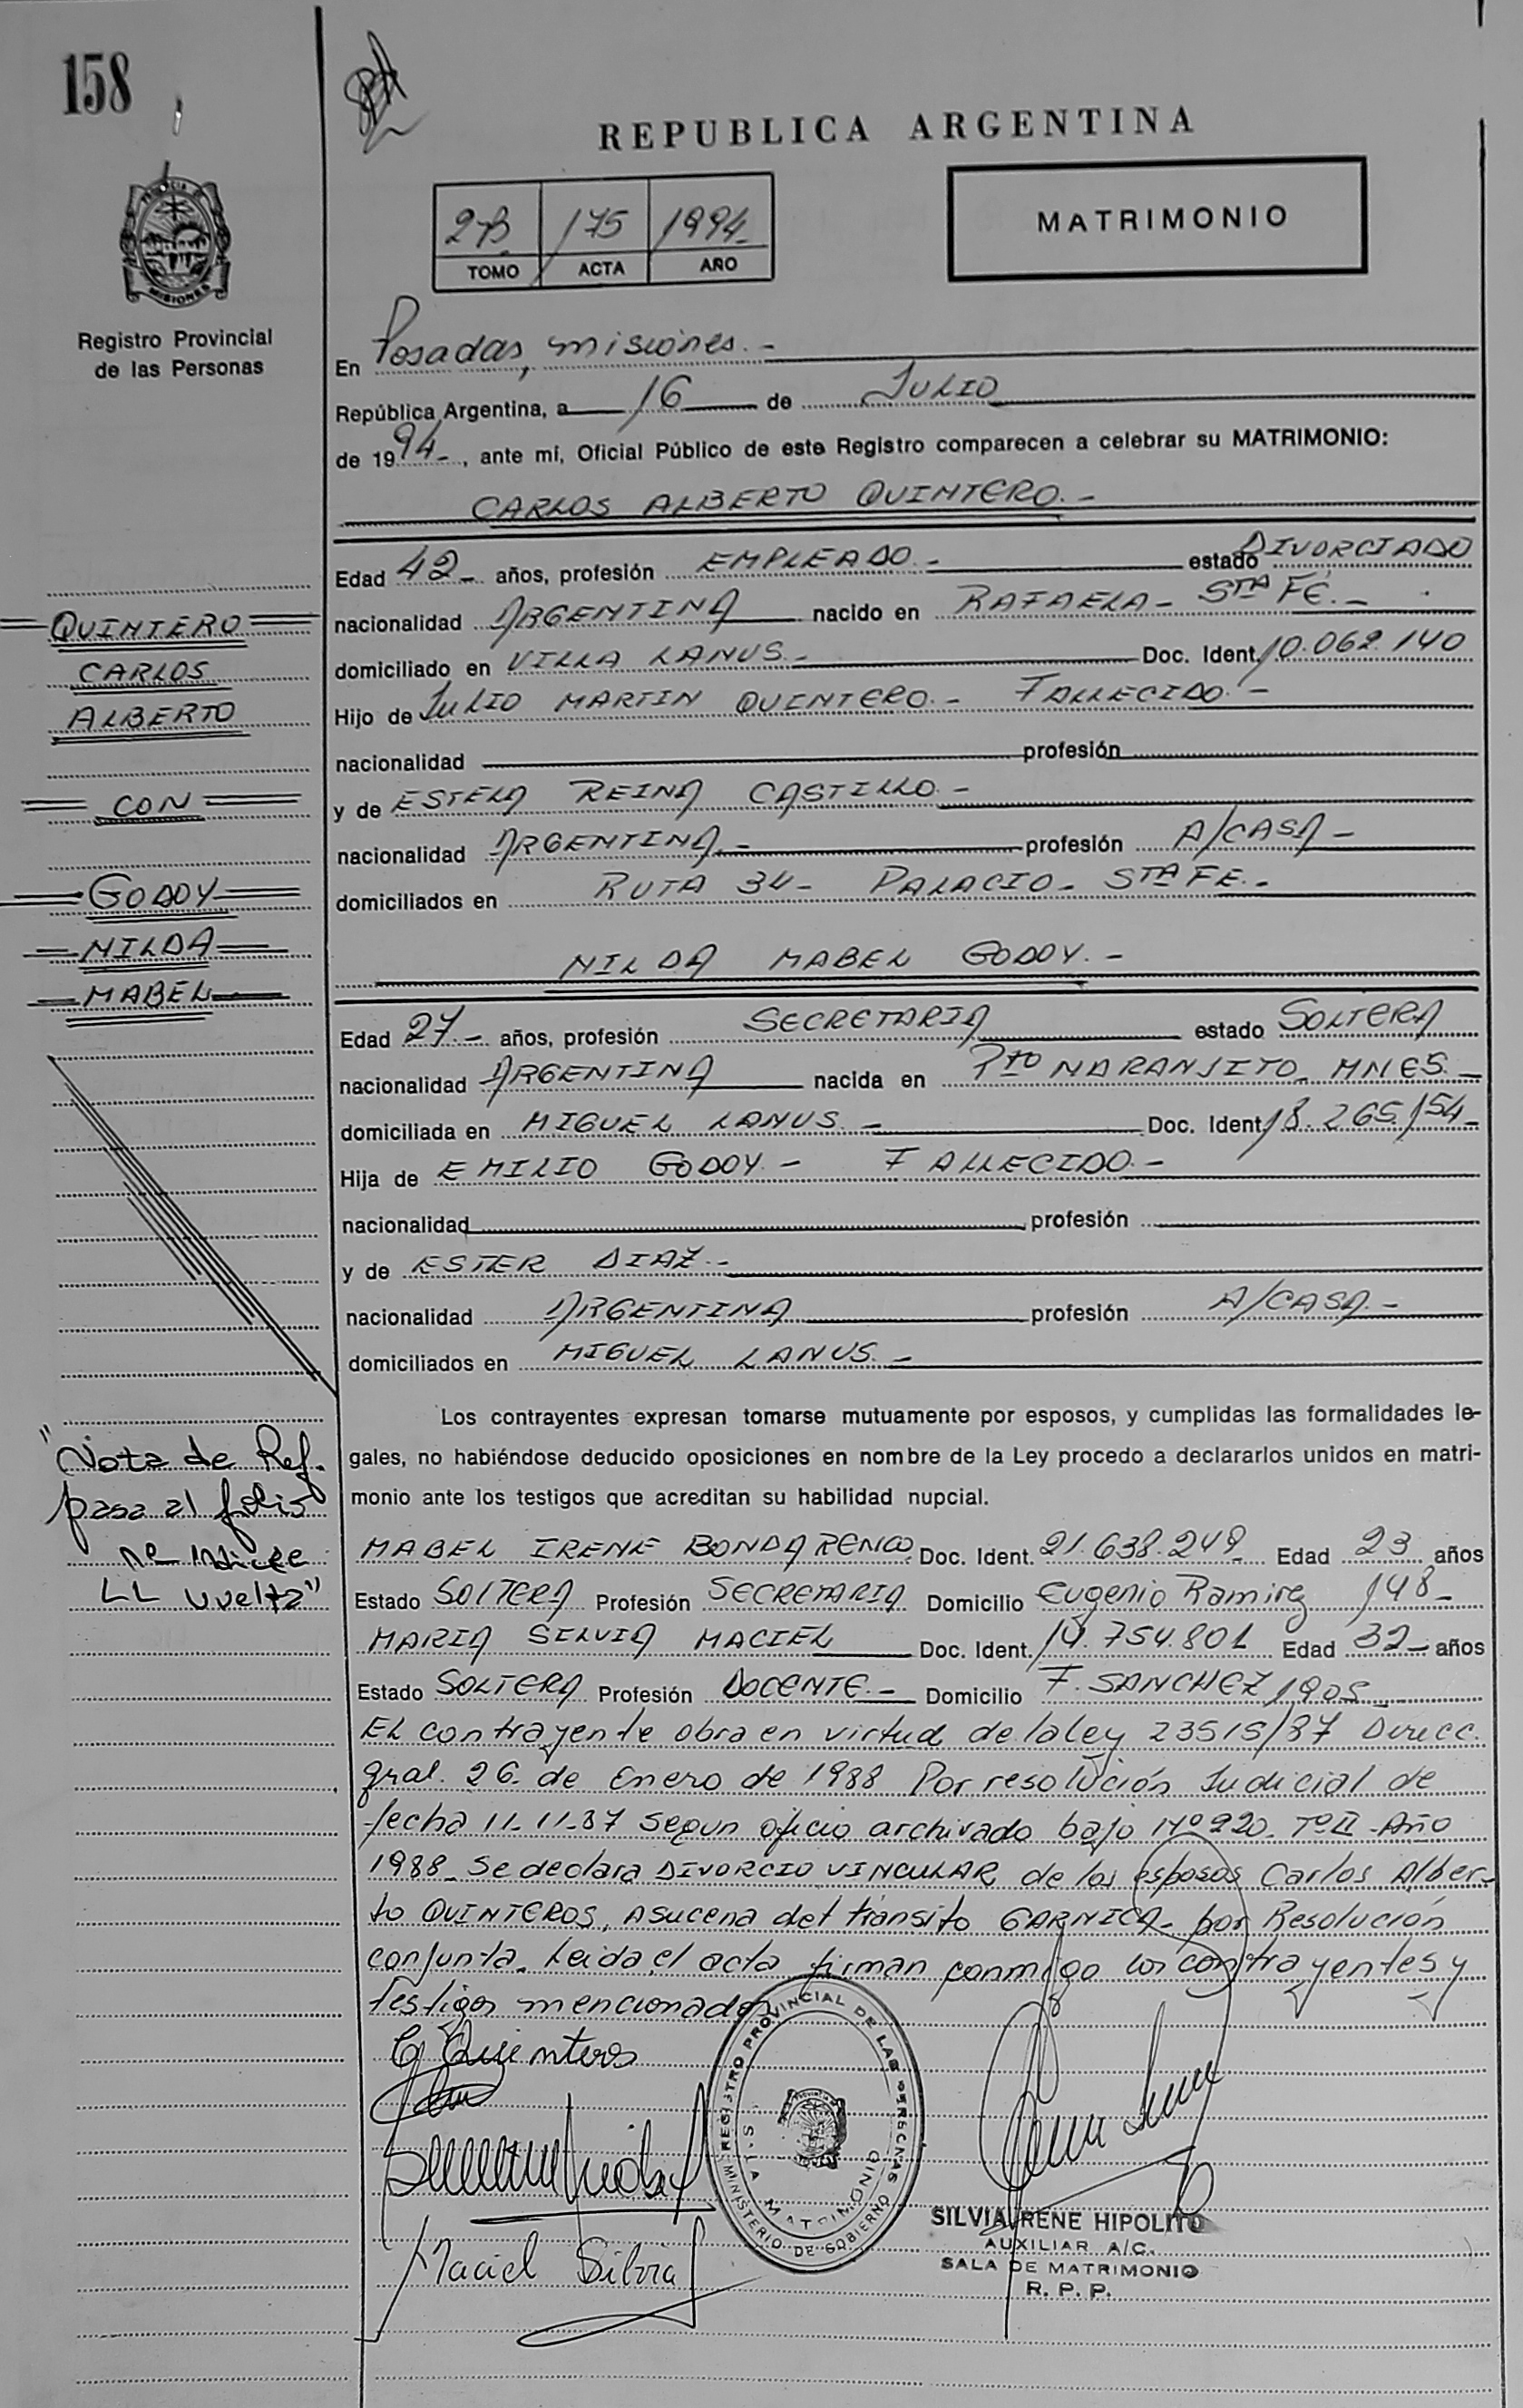 158
REPUBLICA ARGENTINA
2B 175 1994
TOMO ACTA AÑO
MATRIMONIO
MISIONES
Registro Provincial
de las Personas
En Posadas, misiones.-
República Argentina, a 16 de JULIO
de 1994-, ante mí, Oficial Público de este Registro comparecen a celebrar su MATRIMONIO:
CARLOS ALBERTO QUINTERO.-
Edad 42- años, profesión EMPLEADO.- estado DIVORCIADO
nacionalidad ARGENTINA nacido en RAFAELA- STA FÉ.-
domiciliado en VILLA LANUS.- Doc. Ident. 10.062.140
Hijo de JULIO MARTIN QUINTERO.- FALLECIDO.-
nacionalidad profesión
y de ESTELA REINA CASTILLO.-
nacionalidad ARGENTINA.- profesión A/CASA-
domiciliados en RUTA 34- PALACIO- STA FE.-
NILDA MABEL GODOY.-
Edad 27.- años, profesión SECRETARIA estado SOLTERA
nacionalidad ARGENTINA nacida en Pto NARANJITO- MNES.-
domiciliada en MIGUEL LANUS.- Doc. Ident. 18.265.154-
Hija de EMILIO GODOY.- FALLECIDO.-
nacionalidad profesión
y de ESTER DIAZ.-
nacionalidad ARGENTINA profesión A/CASA.-
domiciliados en MIGUEL LANUS.-
QUINTERO
CARLOS
ALBERTO
CON
GODOY
NILDA
MABEL
"Nota de Ref.
pasa al folio
nº indice
LL vuelta"
Los contrayentes expresan tomarse mutuamente por esposos, y cumplidas las formalidades le-
gales, no habiéndose deducido oposiciones en nombre de la Ley procedo a declararlos unidos en matri-
monio ante los testigos que acreditan su habilidad nupcial.
MABEL IRENE BONDARENCO Doc. Ident. 21.638.249 Edad 23 años
Estado SOLTERA Profesión SECRETARIA Domicilio Eugenio Ramirez 148-
MARIA SILVIA MACIEL Doc. Ident. 14.754.801 Edad 32- años
Estado SOLTERA Profesión DOCENTE.- Domicilio F. SANCHEZ 1905-
EL contrayente obra en virtud de la ley 23515/87 Direcc.
gral. 26. de Enero de 1988 Por resolución Judicial de
fecha 11-11-87 Segun oficio archivado bajo Nº 920- Tº II- Año
1988- Se declara DIVORCIO VINCULAR de los esposos Carlos Alber-
to QUINTEROS, Asucena del tránsito GARNICA- por Resolución
conjunta. Leida el acta firman conmigo los contrayentes y
testigos mencionados
C Quinteros
Maciel Silvia
REGISTRO PROVINCIAL DE LAS PERSONAS
MINISTERIO DE GOBIERNO
MATRIMONIO
SILVIA IRENE HIPOLITO
AUXILIAR A/C.
SALA DE MATRIMONIO
R. P. P.